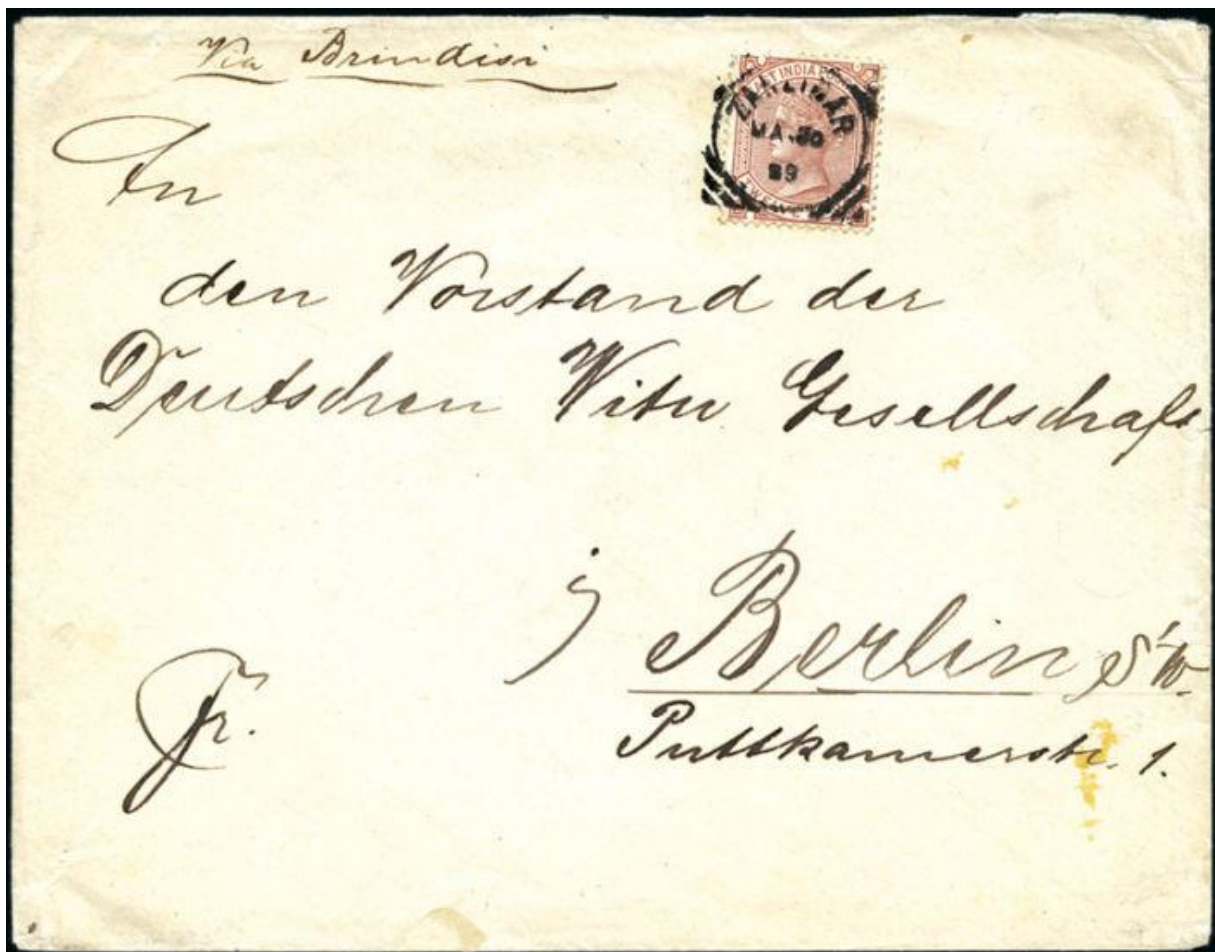 Via Brindisi
ZANZIBAR
MA 30
89
An
den Vorstand der
Deutschen Witu Gesellschaft
j Berlin S.W.
Fr.
Puttkamerstr. 1.